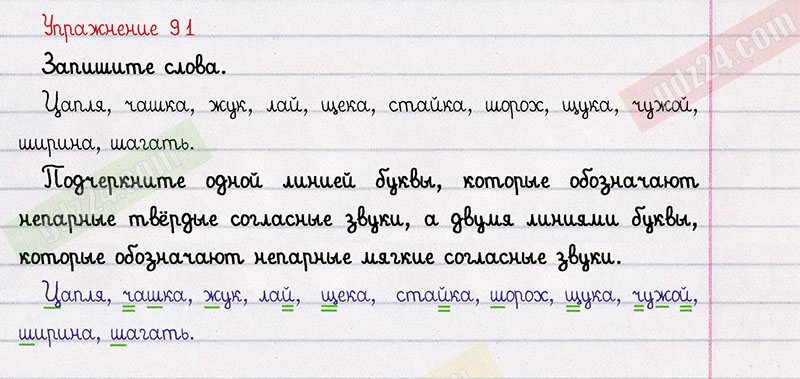 Упражнение 91
Запишите слова.
Цапля, чашка, жук, лай, щека, стайка, шорох, щука, чужой,
ширина, шагать.
Подчеркните одной линией буквы, которые обозначают
непарные твёрдые согласные звуки, а двумя линиями буквы,
которые обозначают непарные мягкие согласные звуки.
Цапля, чашка, жук, лай, щека, стайка, шорох, щука, чужой,
ширина, шагать.
gdz24.com
gdz24.com